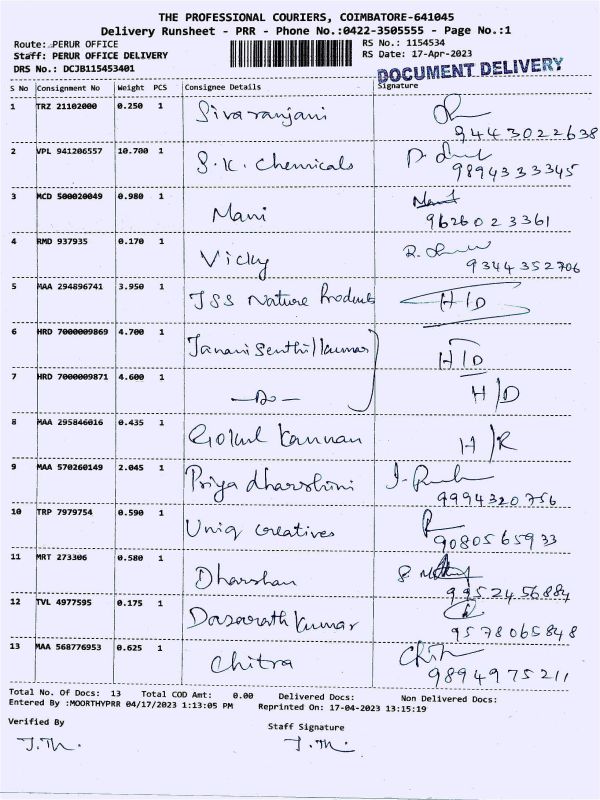 THE PROFESSIONAL COURIERS, COIMBATORE-641045
Delivery Runsheet - PRR - Phone No.:0422-3505555 - Page No.:1
Route: PERUR OFFICE RS No.: 1154534
Staff: PERUR OFFICE DELIVERY RS Date: 17-Apr-2023
DRS No.: DCJB115453401 DOCUMENT DELIVERY
S No Consignment No Weight PCS Consignee Details Signature
1 TRZ 21102000 0.250 1 Sivaranjani
9443022638
2 VPL 941206557 10.700 1 S.K. Chemicals
9894333345
3 MCD 500020049 0.980 1 Mani Mani
9626023361
4 RMD 937935 0.170 1 Vicky
9344352706
5 MAA 294896741 3.950 1 JSS Nature Products H/D
6 HRD 7000009869 4.700 1 Janani Senthilkumar H/D
7 HRD 7000009871 4.600 1 -Do- H/D
8 MAA 295846016 0.435 1 Gokul Kannan H/R
9 MAA 570260149 2.045 1 Priya dharshini
9994320756
10 TRP 7979754 0.590 1 Uniq creatives
9080565933
11 MRT 273306 0.580 1 Dharshan
9952456884
12 TVL 4977595 0.175 1 Dasarath Kumar
9578065848
13 MAA 568776953 0.625 1 Chitra
9894975211
Total No. Of Docs: 13 Total COD Amt: 0.00 Delivered Docs: Non Delivered Docs:
Entered By :MOORTHYPRR 04/17/2023 1:13:05 PM Reprinted On: 17-04-2023 13:15:19
Verified By Staff Signature